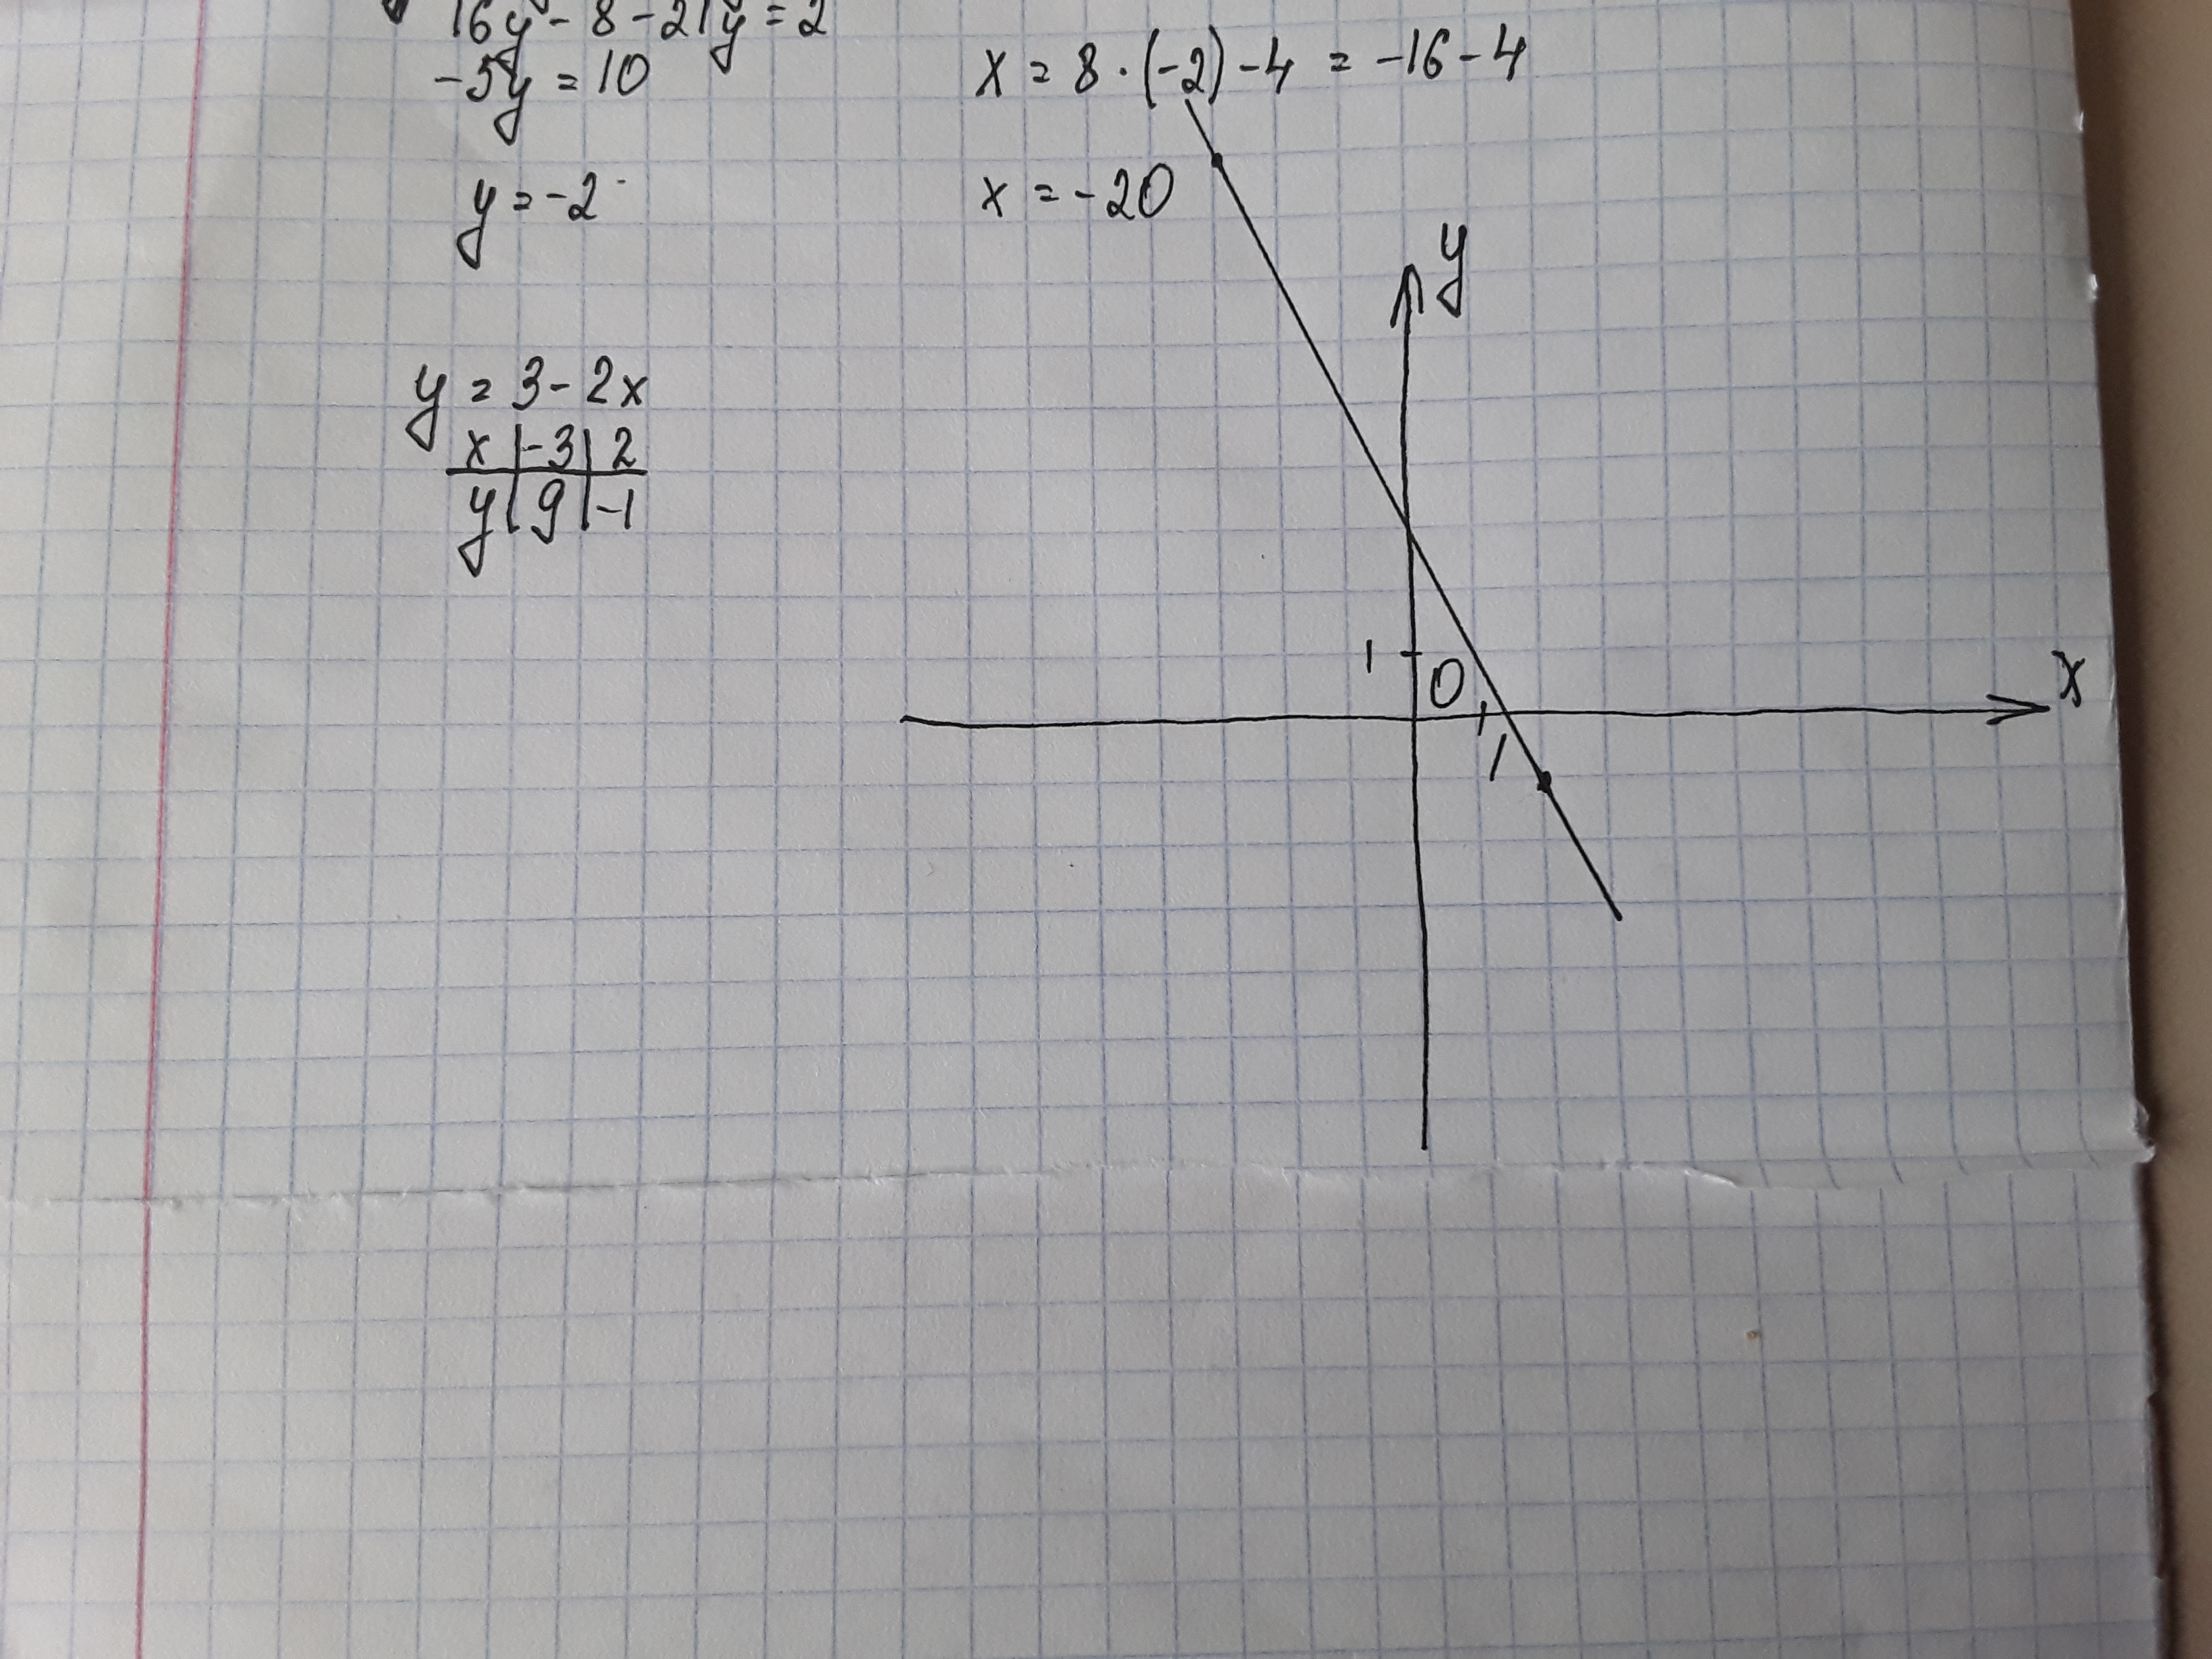 16y - 8 - 21y = 2
-5y = 10
y = -2
x = 8 · (-2) - 4 = -16 - 4
x = -20
y = 3 - 2x
x | -3 | 2
y | 9 | -1
y
1
0
x
1